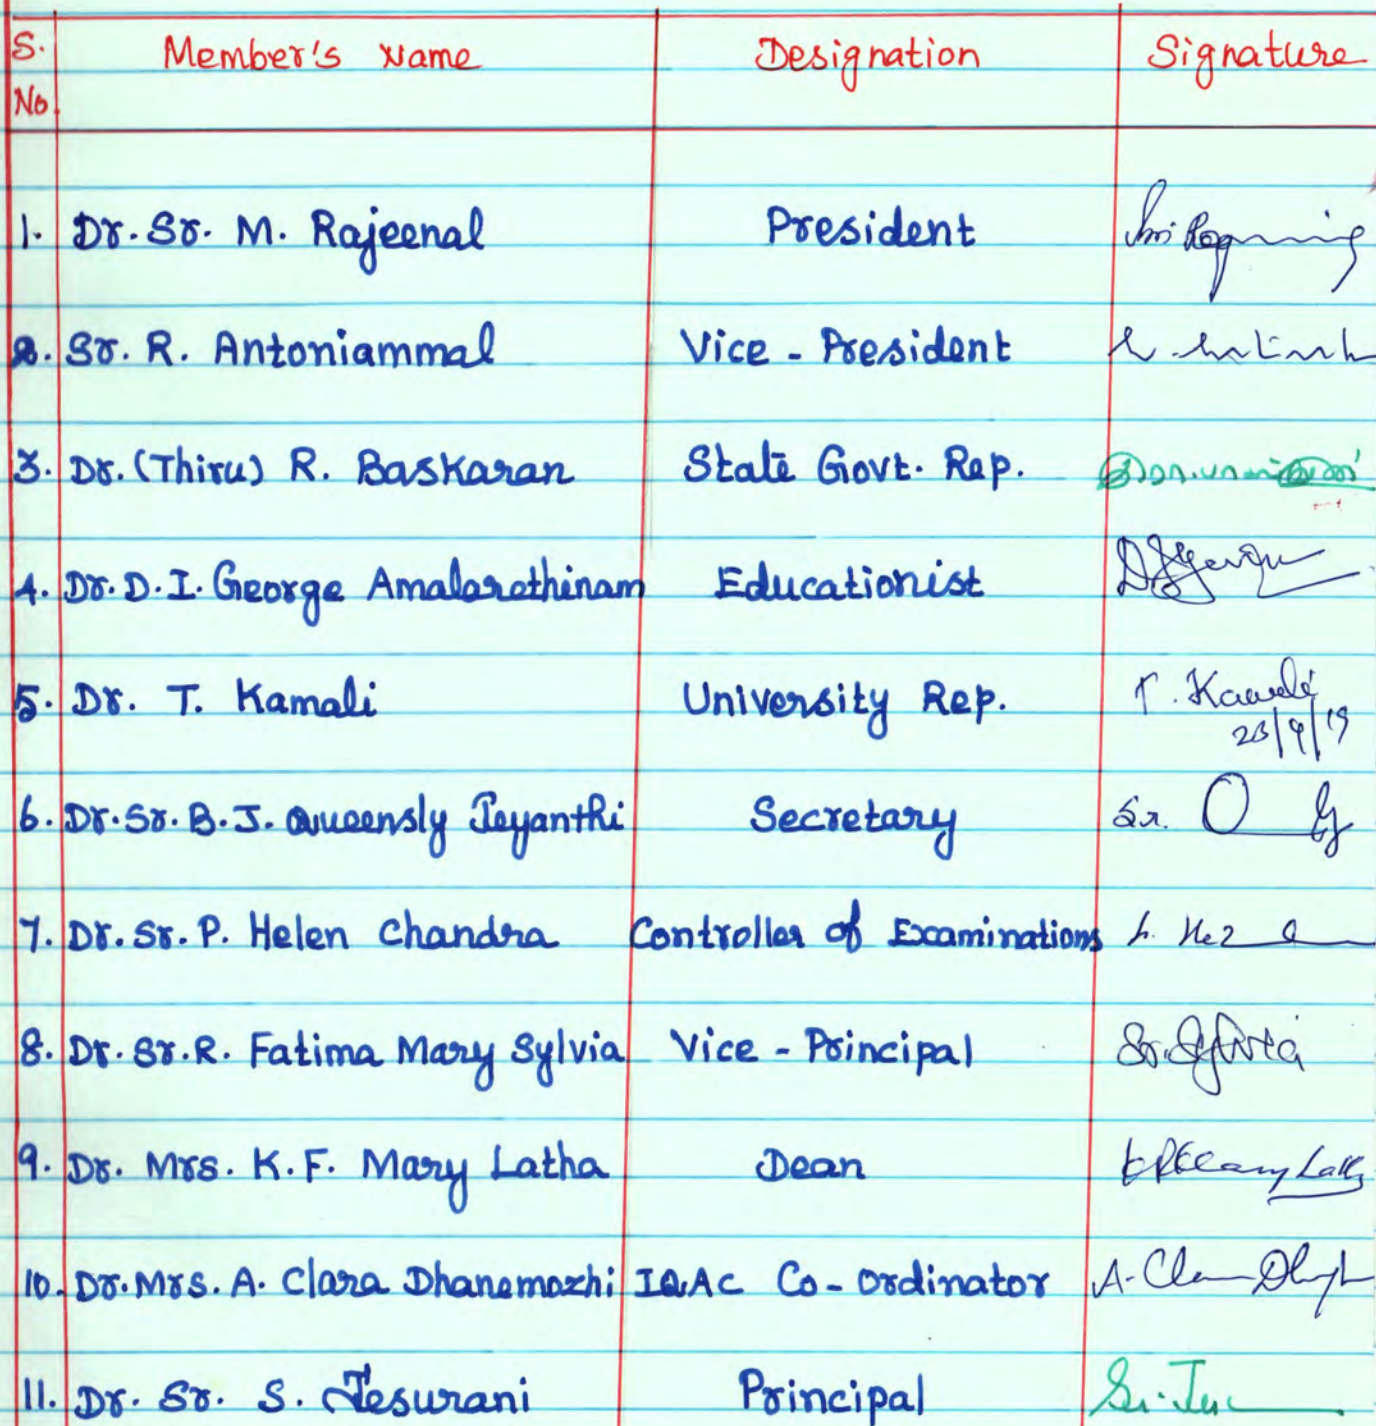 S. No Member's Name Designation Signature
1. Dr. Sr. M. Rajeenal President
2. Sr. R. Antoniammal Vice - President
3. Dr. (Thiru) R. Baskaran State Govt. Rep.
4. Dr. D. I. George Amalarethinam Educationist
5. Dr. T. Kamali University Rep. T. Kamali
6. Dr. Sr. B. J. Queensly Jeyanthi Secretary Sr.
7. Dr. Sr. P. Helen Chandra Controller of Examinations
8. Dr. Sr. R. Fatima Mary Sylvia Vice - Principal Sr. Sylvia
9. Dr. Mrs. K. F. Mary Latha Dean
10. Dr. Mrs. A. Clara Dhanemozhi IQAC Co - ordinator
11. Dr. Sr. S. Jesurani Principal